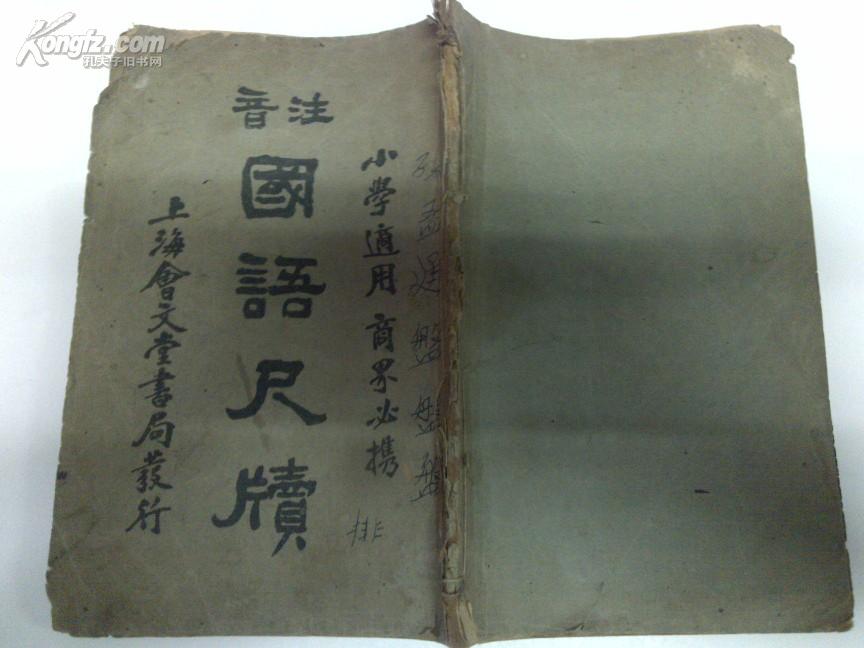 Kongfz.com
孔夫子旧书网
小學適用 商界必携
注音
國語尺牘
上海會文堂書局發行
排